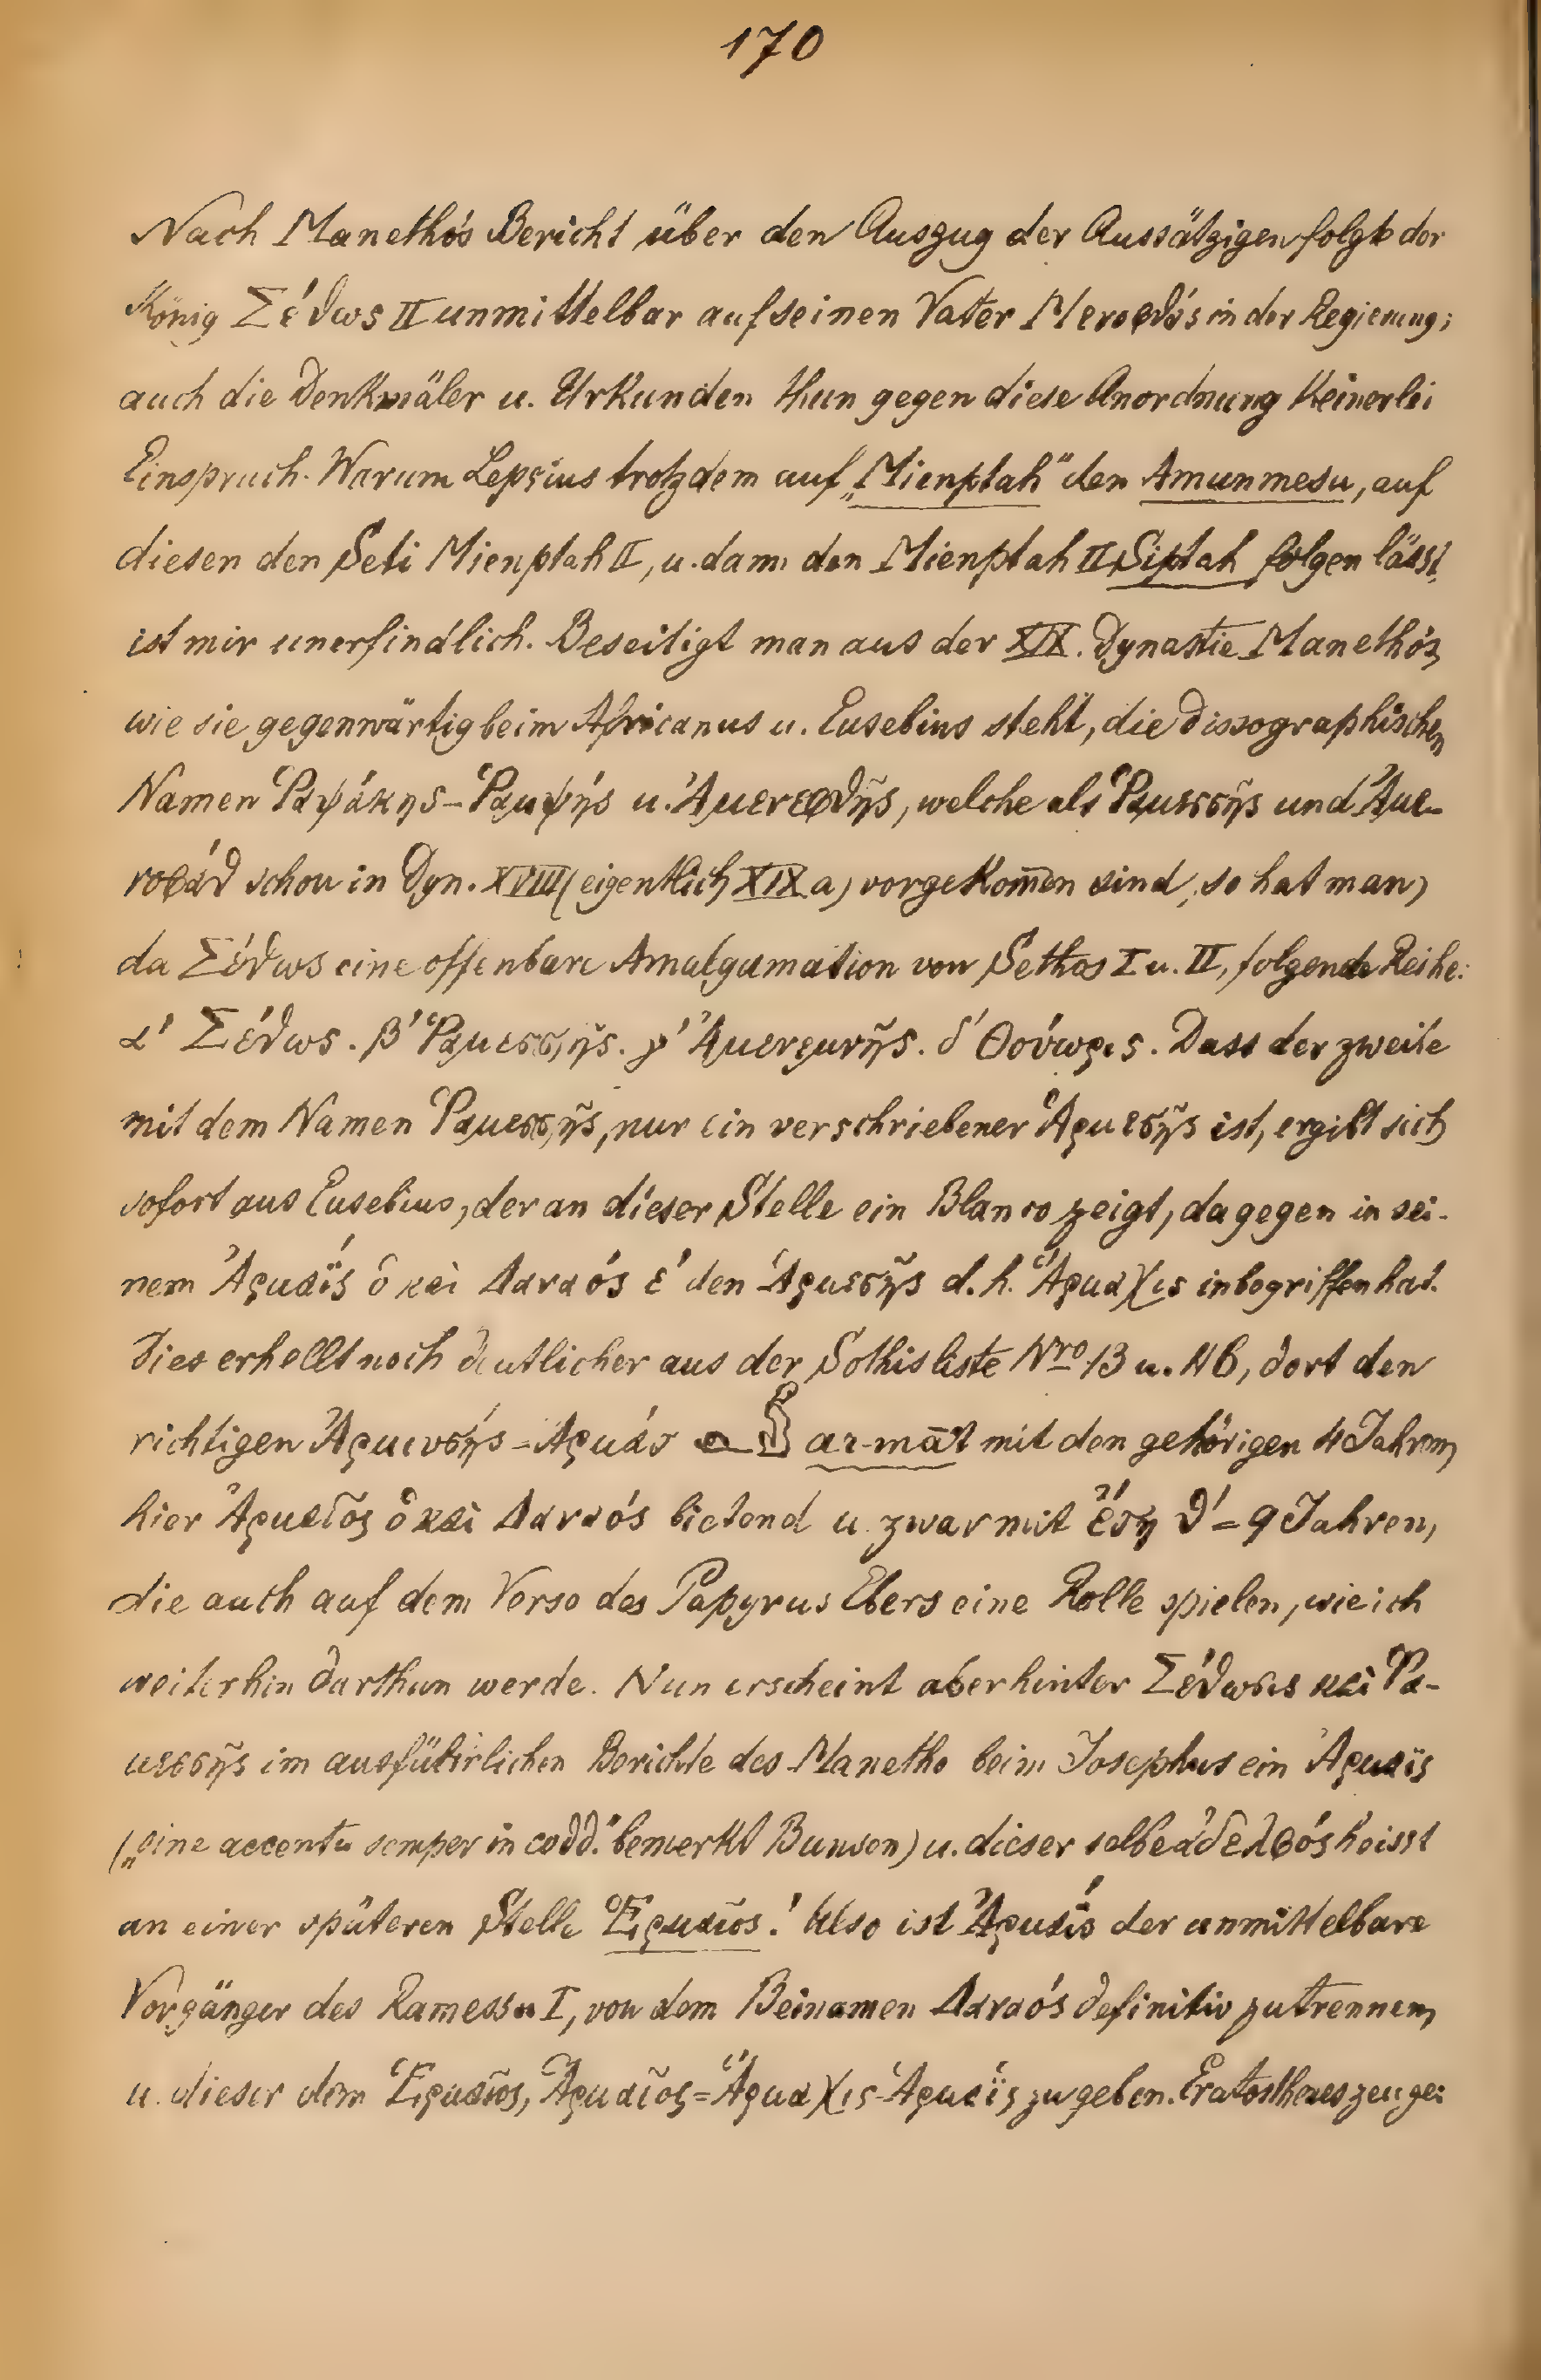 170
Nach Manethós Bericht über den Auszug der Aussätzigen folgt der
König Σέθως II unmittelbar auf seinen Vater Μενεφθάς in der Regierung;
auch die Denkmäler u. Urkunden thun gegen diese Anordnung keinerlei
Einspruch. Warum Lepsius trotzdem auf „Mienptah" den Amunmesu, auf
diesen den Seti Mienptah II, u. dann den Mienptah II Siptah folgen lässt,
ist mir unerfindlich. Beseitigt man aus der XIX. Dynastie Manethós,
wie sie gegenwärtig beim Africanus u. Eusebius steht, die dissographischen
Namen Ῥαψάκης–Ῥαμψής u. Ἀμενεφθῆς, welche als Ῥαμεσσῆς und Ἀμε-
νωφάθ schon in Dyn. XVIII (eigentlich XIX a) vorgekom̄en sind, so hat man,
da Σέθως eine offenbare Amalgamation von Sethos I u. II, folgende Reihe:
α' Σέθως. β' Ῥαμεσσῆς. γ' Ἀμενεμνῆς. δ' Θούωρις. Dass der zweite
mit dem Namen Ῥαμεσσῆς, nur ein verschriebener Ἁρμεσῆς ist, ergibt sich
sofort aus Eusebius, der an dieser Stelle ein Blanco zeigt, dagegen in sei-
nem Ἀρμαΐς ὁ καὶ Δαναός ε' den Ἁρμεσῆς d. h. Ἅρμαχις inbegriffen hat.
Dies erhellt noch deutlicher aus der Sothisliste Nro 13 u. 46, dort den
richtigen Ἀρμενσής–Ἀρμάτ ar-māt mit den gehörigen 4 Jahren,
hier Ἀρμαῖος ὁ καὶ Δαναός bietend u. zwar mit ἔτη θ' = 9 Jahren,
die auch auf dem Verso des Papyrus Ebers eine Rolle spielen, wie ich
weiterhin darthun werde. Nun erscheint aber hinter Σέθωσις καὶ Ῥα-
μεσσῆς im ausfürlichen Berichte des Manetho beim Josephus ein Ἀρμαϊς
(„sine accentu semper in codd." bemerkt Bunsen) u. dieser selbe ἀδελφός heisst
an einer späteren Stelle Ἑρμαιος! Also ist Ἀρμαΐς der unmittelbare
Vorgänger des Ramessu I, von dem Beinamen Δαναός definitiv zu trennen,
u. dieser dem Ἑρμαῖος, Ἁρμαῖος = Ἅρμαχις–Ἁρμαΐς zu geben. Eratosthenes zeuge: